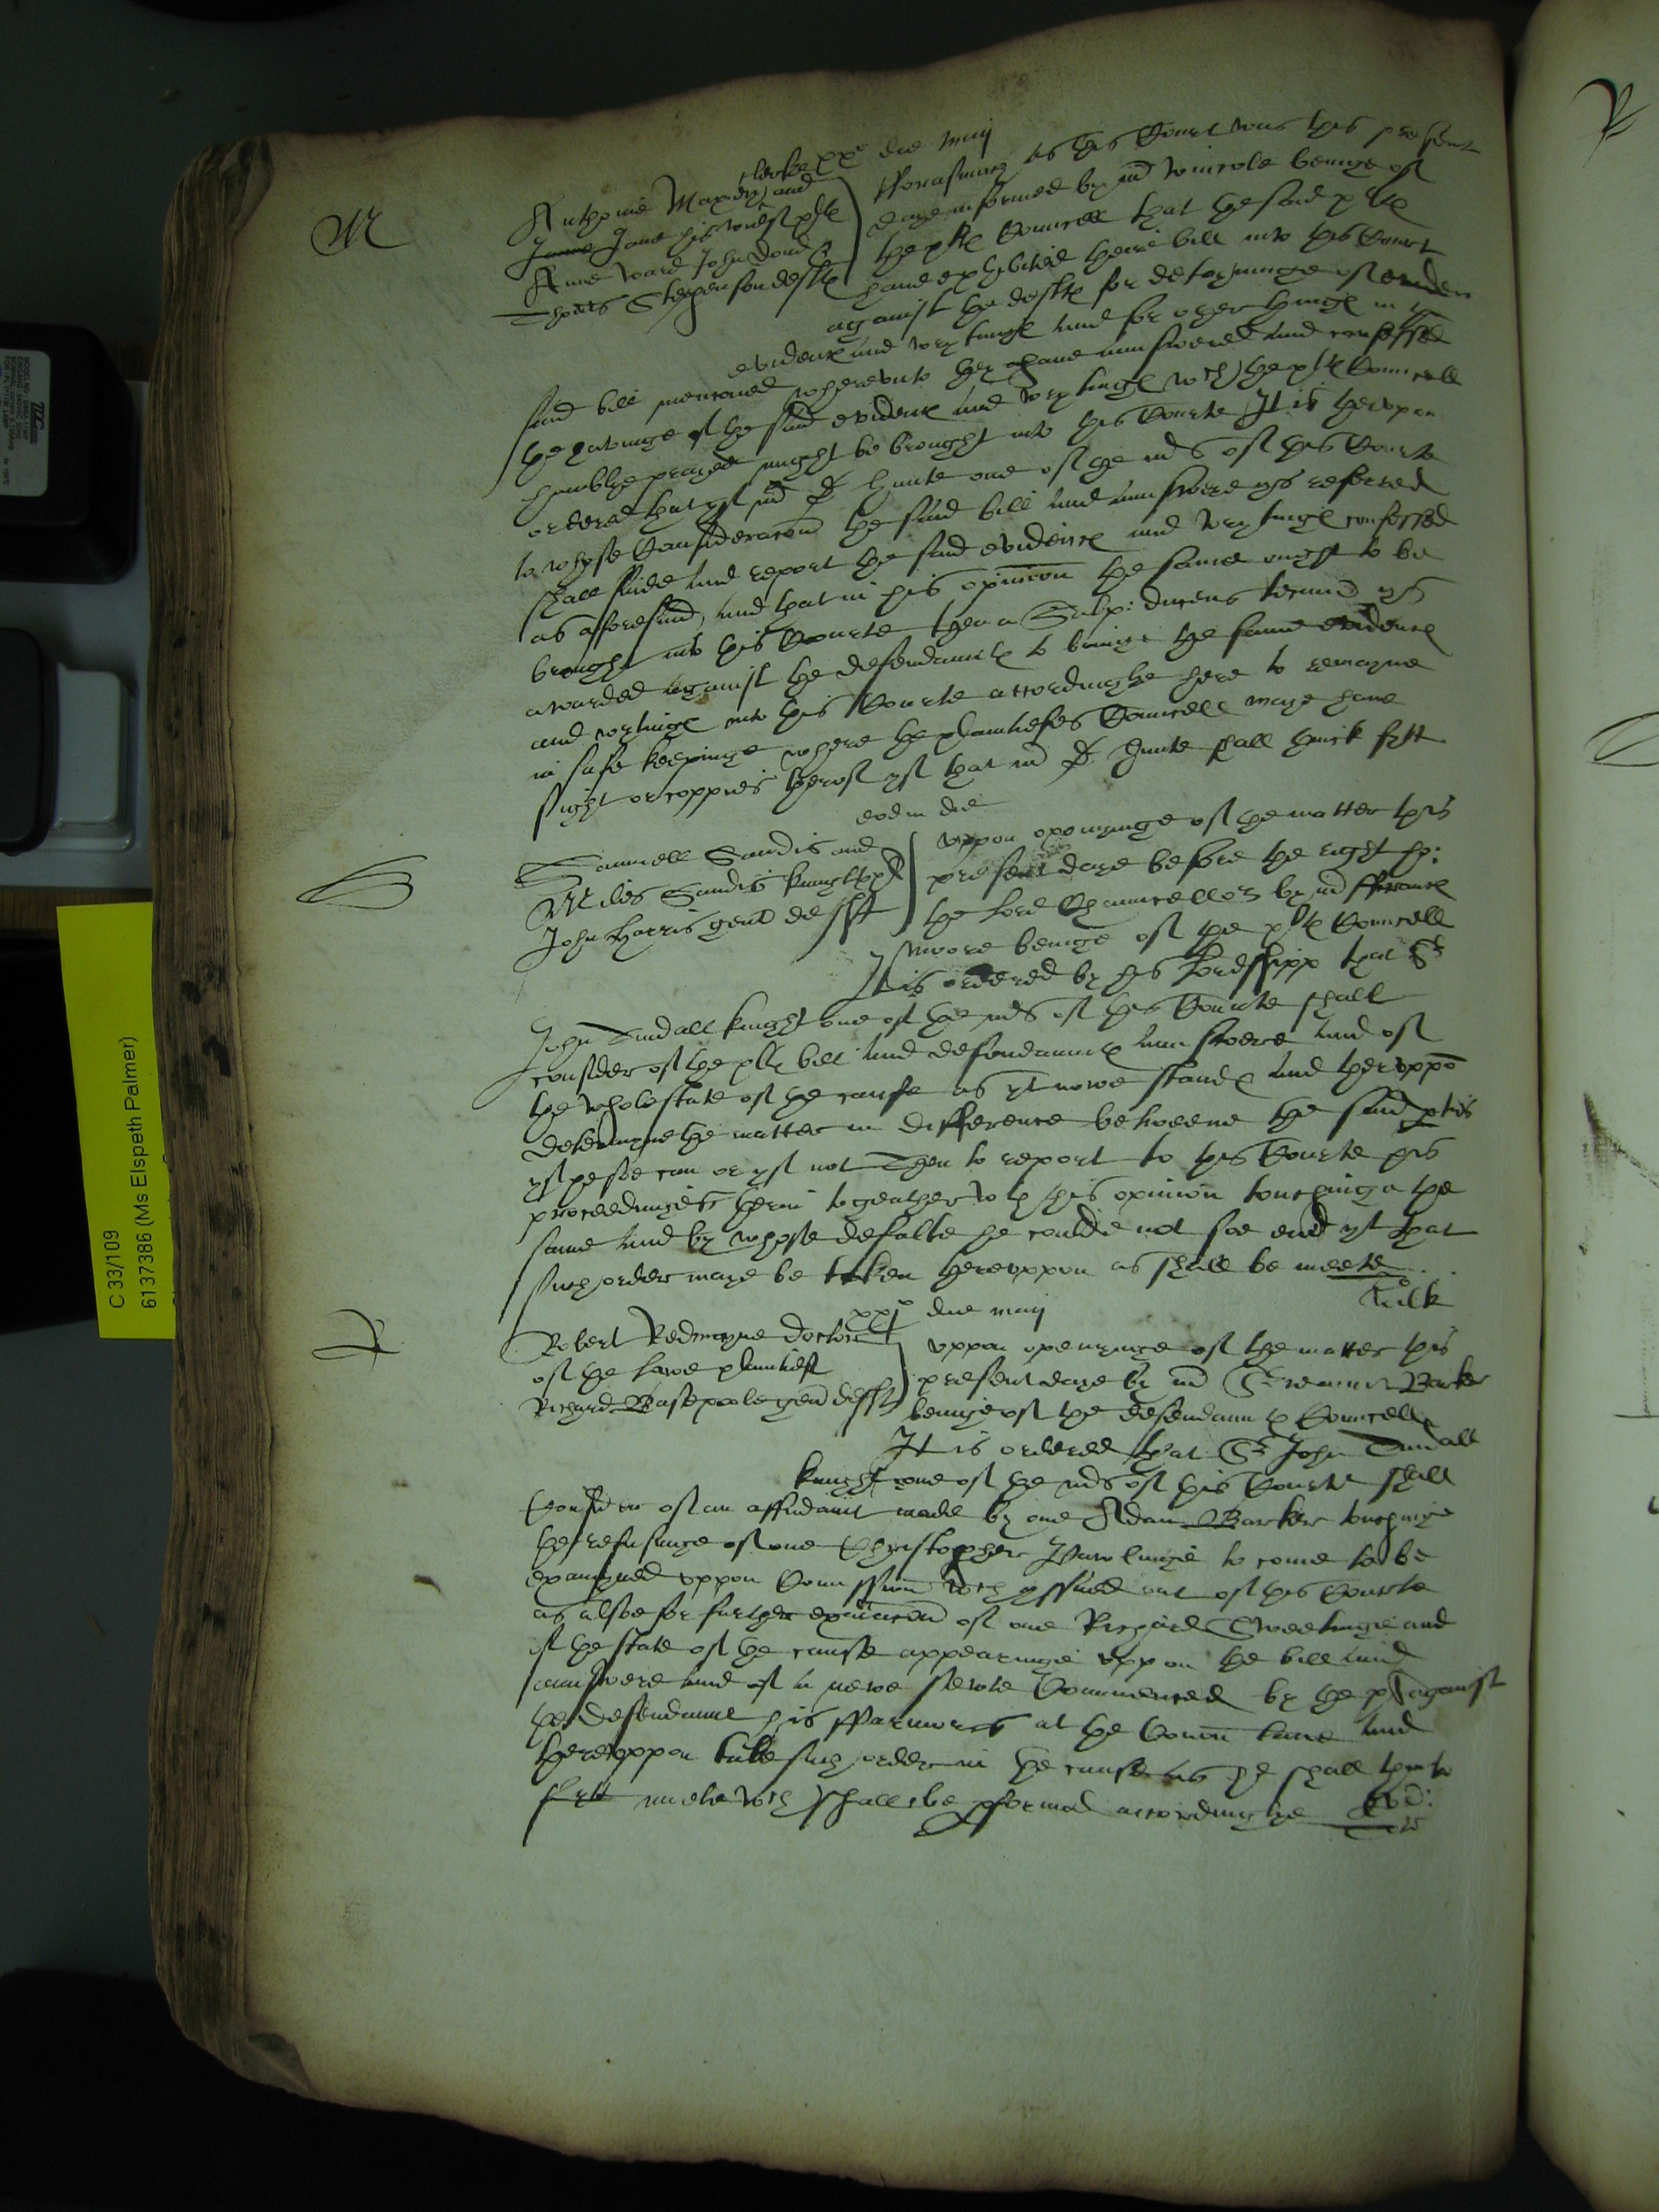 xx° die Maij
M
Anthonie Maxey clerke and
Jane Jane his wief pltes
Anne Ward John Dand &
Thoms Stephenson deftes
Forasmuch as this Court was this present
daye informed by mr Wincole beinge of
the pltes Councell that the said pltes
haue exhibited theire bill into this Court
against the deftes for deteyninge of
evidences and wrytinges and for other thinges in the
said bill mencioned wherevnto they haue aunswered and confessed
the havinge of the said evidences and wrytinges wch the pltes Councell
humblye prayed might be brought into this Courte It is therevpon
ordered that yf mr D. Hunte one of the mrs of this Courte
to whose Consideracon the said bill and aunswere ys referred
shall finde and report the said evidences and wrytinges confessed
as afforesaid, and that in his opinion the same ought to be
brought into this Courte then a Subp: ducens tecum ys
awarded against the defendauntes to bringe the same evidences
and wrytinges into this Courte accordinglye here to remayne
in safe keepinge where the plaintiefes Councell maye haue
sight or coppies therof yf that mr D. Hunte shall think fytt
eodem die
S
Samuell Sandis and
Miles Sandis knightes pltes
John Harris gent deft
vppon openinge of the matter this
present daye before the right ho:
the Lord Chauncellor by mr Frauncis
Moore beinge of the pltes Councell
It is ordered by his Lordshipp that Sr
John Tindall knight one of the mrs of this Courte shall
consider of the pltes bill and defendauntes aunswere and of
the whole state of the cause as yt nowe standes and therevppon
determyne the matter in difference betweene the said pties
yf he soe can or yf not Then to report to this Courte his
proceedinges therin togeather wth his opinion touchinge the
same and by whose defalte he coulde not soe end yt that
such order maye be taken therevppon as shall be meete
xxj° die Maij
R
Robert Redmayne doctor
of the Lawe plaintief
Richard Bastpoole gent deft
vppon openinge of the matter this
present daye by mr Barker
beinge of the defendauntes Councell
It is ordered that Sr John Tindall
knight one of the mrs of this Courte shall
Consider of an affidauit made by one Adam Barker touchinge
the refusinge of one Christopher Pawlinge to come to be
examyned vppon Comission wch yssued out of this Courte
as alsoe for further examinacon of one Richard Sweetinge and
of the state of the cause appearinge vppon the bill and
aunswere and of a newe siewte Commenced by the pl against
the defendaunt his ffarmors at the Comon Lawe and
therevppon take such order in the cause as he shall thinke
fytt wch shall be pformed accordinglye
C 33/109
6137386 (Ms Elspeth Palmer)